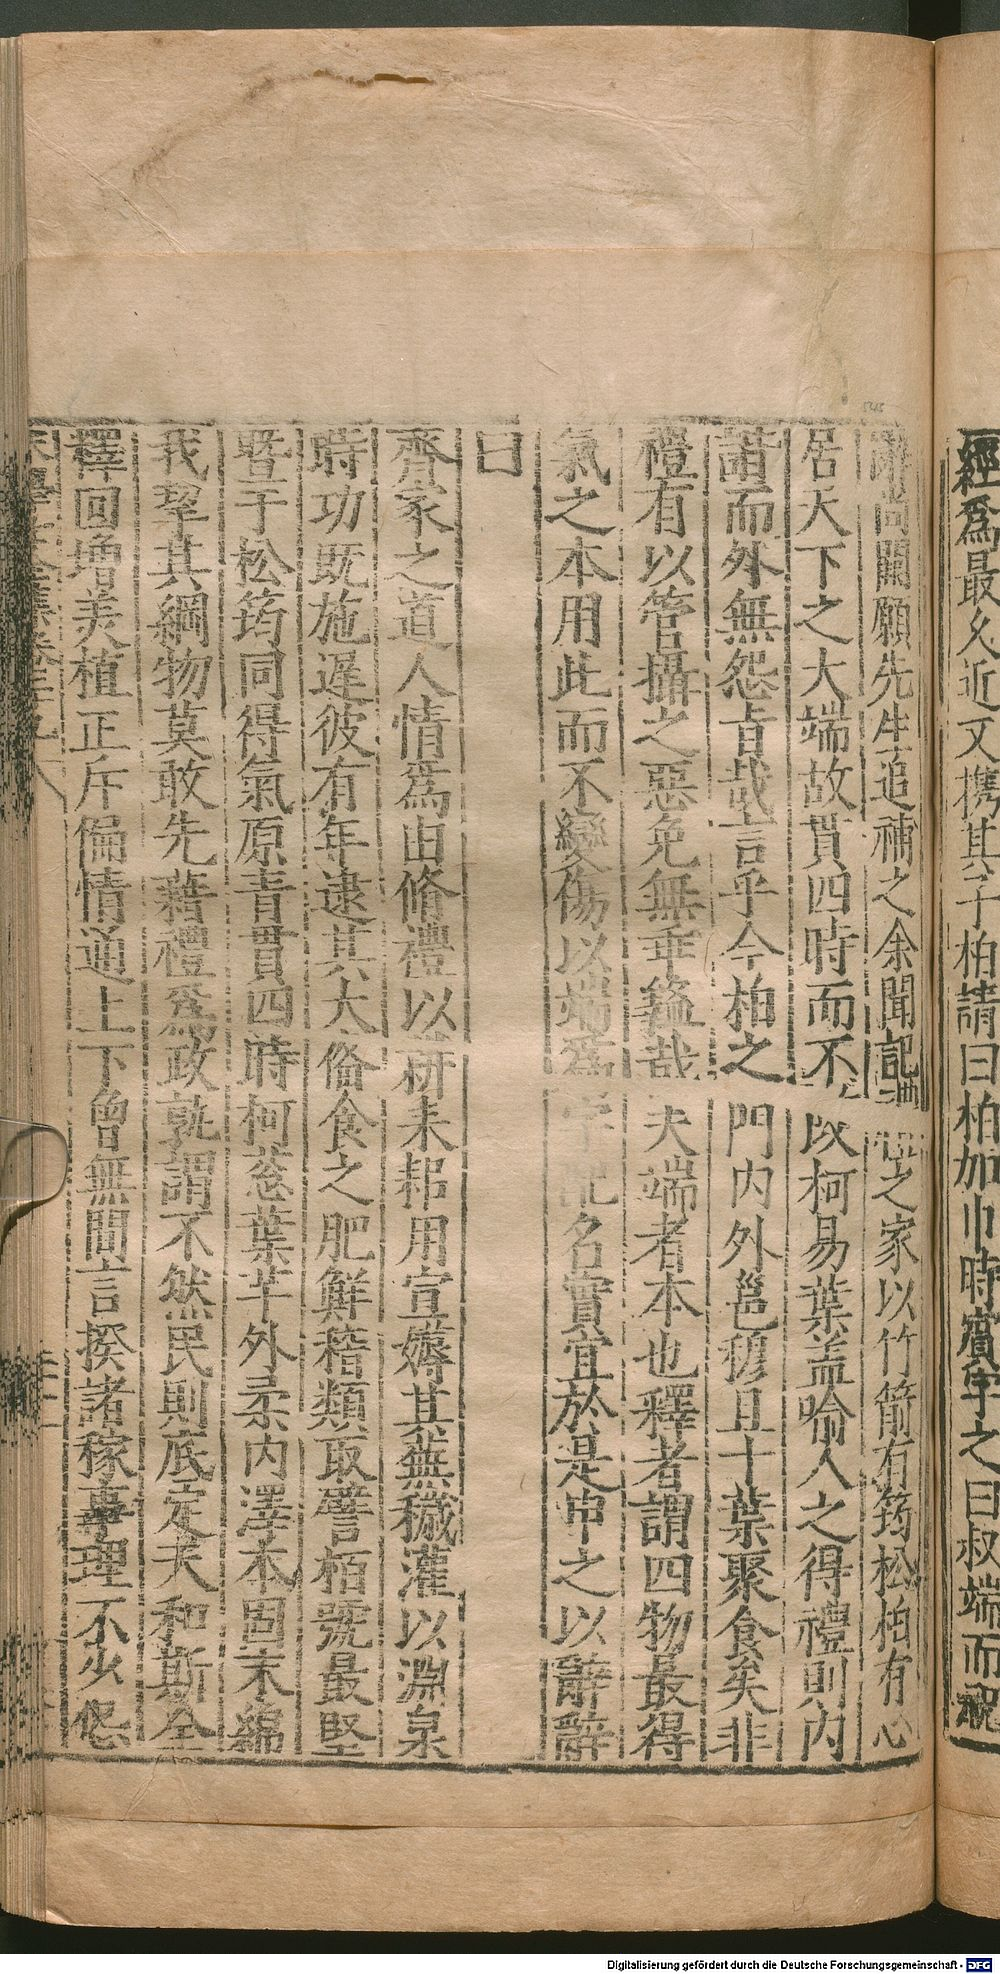 經爲最久近又携其子柏請曰柏加巾時賓字之曰叔端而祝
辭尚闕願先生追補之余聞記禮之家以竹箭有筠松柏有心
居天下之大端故貫四時而不改柯易葉盖喻人之得禮則内
諧而外無怨旨哉言乎今柏之門内外邕穆且十葉聚食矣非
禮有以管攝之惡免無乖盭哉夫端者本也釋者謂四物最得
氣之本用此而不變傷以端爲字配名實宜於是申之以辭辭
曰
齊家之道人情爲由脩禮以耕耒耜用宣薅其蕪穢灌以淵泉
時功既施遲彼有年逮其大僃食之肥鮮稽類取譬栢號最堅
曁于松筠同得氣原青貫四時柯葱葉芊外柔内澤本固末綿
我挈其綱物莫敢先藉禮爲政孰謂不然民則底定夫和斯全
釋回増美植正斥偏情通上下曾無間言揆諸稼事理不少愆
Digitalisierung gefördert durch die Deutsche Forschungsgemeinschaft - DFG